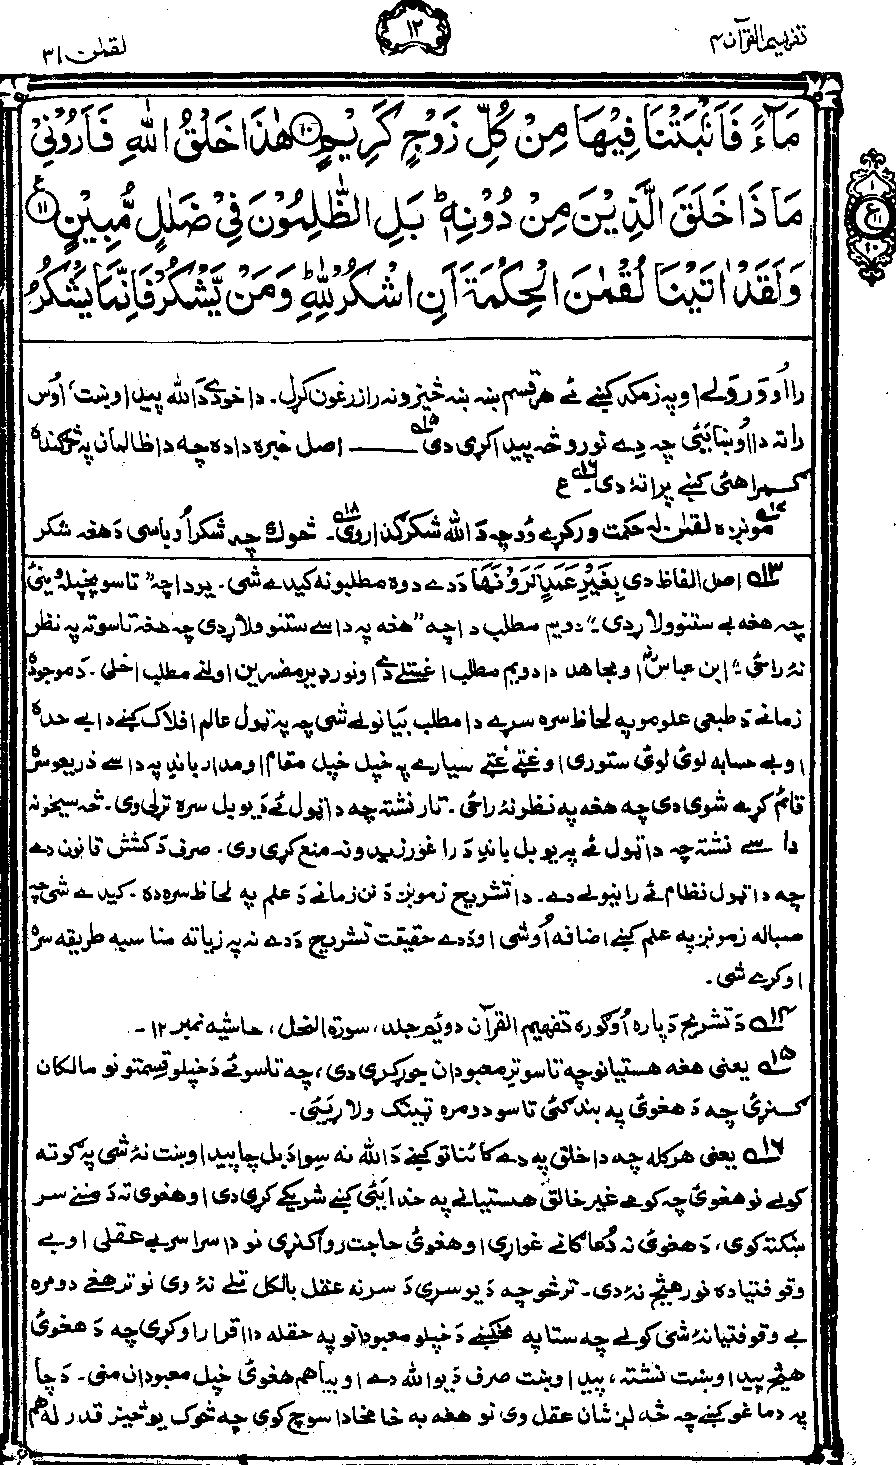 تفهیم القرآن ۴
۱۲
لقمٰن ۳۱
مَآءً فَاَنْۢبَتْنَا فِيْهَا مِنْ كُلِّ زَوْجٍ كَرِيْمٍ ۝۱۰ هٰذَا خَلْقُ اللّٰهِ فَاَرُوْنِيْ
مَاذَا خَلَقَ الَّذِيْنَ مِنْ دُوْنِهٖ ؕ بَلِ الظّٰلِمُوْنَ فِيْ ضَلٰلٍ مُّبِيْنٍ ۝۱۱ ع
وَلَقَدْ اٰتَيْنَا لُقْمٰنَ الْحِكْمَةَ اَنِ اشْكُرْ لِلّٰهِ ؕ وَمَنْ يَّشْكُرْ فَاِنَّمَا يَشْكُرُ
را اُوورولے او په زمکه کښے ئے هر قسم ښه ښه څیزونه رازرغون کړل۔ دا خودۓ دَ الله پیدا وښت، اُوس
راته دا اُوښایٔی چه دے نورو څه پیدا کړی دی ۱۵ــــ اصل خبره دا ده چه دا ظالمان په ښکنده
گمراهیٔ کښے پراته دی ۱۶۔ ع
۱۷ مونږه لقمٰن له حکمت ورکړے وُو چه دَ الله شکر گذار وی ۱۸۔ څوک چه شکر اُوباسی دَ هغه شکر
۱۳ اصل الفاظ دی بِغَيْرِ عَمَدٍ تَرَوْنَهَا دَ دے دوه مطلبونه کیدے شی۔ یو دا چه ”تاسو پخپله وینیٔ
چه هغه بے ستنو ولاړ دی۔“ دویم مطلب دا چه ”هغه په داسے ستنو ولاړ دی چه هغه تاسو ته په نظر
نهٔ راځی۔“ ابن عباسؓ او مجاهد دا دویم مطلب اغستلے دے او نورو ډیرو مفسرین اولنے مطلب اخلی۔ دَ موجوده
زمانے دَ طبعی علومو په لحاظ سره دا مطلب بیانولے شی چه په ټول عالم افلاک کښے دا بے حده
او بے حسابه لوئ لوئ ستوری او غټے غټے سیارے په خپل خپل مقام او مدار باندِ په داسے ذریعو سره
قائم کړے شوی دی چه هغه په نظر نهٔ راځی۔ تار نشته چه دا ټول ئے دَ یو بل سره تړلی وی۔ څه سیخونه
داسے نشته چه دا ټول ئے په یو بل باندِ دَ راغورزیدو نه منع کړی وی۔ صرف دَ کشش قانون دے
چه دا ټول نظام ئے رانیولے دے۔ دا تشریح زمونږ دَ نن زمانے دَ علم په لحاظ سره ده۔ کیدے شی چه
صباله زمونږ په علم کښے اضافه اُوشی او دَ دے حقیقت تشریح دَ دے نه په زیاته مناسبه طریقه سره
اوکړے شی۔
۱۴ دَ تشریح دَ پاره اُوگوره تفهیم القرآن دوئم جلد، سورة النحل، حاشیه نمبر ۱۲۔
۱۵ یعنی هغه هستیانو چه تاسو ترِ معبودان جوړ کړی دی، چه تاسو ئے دَ خپلو قسمتونو مالکان
گنړیٔ چه دَ هغویٔ په بندگیٔ تاسو دومره ټینګ ولاړ یٔی۔
۱۶ یعنی هرکله چه دا خلق په دے کائناتو کښے دَ الله نه سِوا دَ بل چا پیدا وښت نهٔ شی په گوته
کولے نو هغویٔ چه کومے غیر خالق هستیانے په خدایٔی کښے شریکے کړی دی او هغوی ته دَ مننے سر
ښکته کوی، دَ هغویٔ نه دُعا گانے غواړی او هغویٔ حاجت روا گنړی نو دا سراسر بے عقلی او بے
وقوفتیا ده نور هیڅ نهٔ دی۔ ترڅو چه دَ یو سړی دَ سر نه عقل بالکل تلے نهٔ وی نو تر هغے دومره
بے وقوفتیا نهٔ شی کولے چه ستا په مخکښے دَ خپلو معبودانو په حقله دا اقرار اوکړی چه دَ هغویٔ
هیڅ پیدا وښت نشته، پیدا وښت صرف دَ یو الله دے او بیا هم هغویٔ خپل معبودان منی۔ دَ چا
په دماغو کښے چه څه لږ شان عقل وی نو هغه به خا مخا دا سوچ کوی چه څوک یو څیز قدر له هم